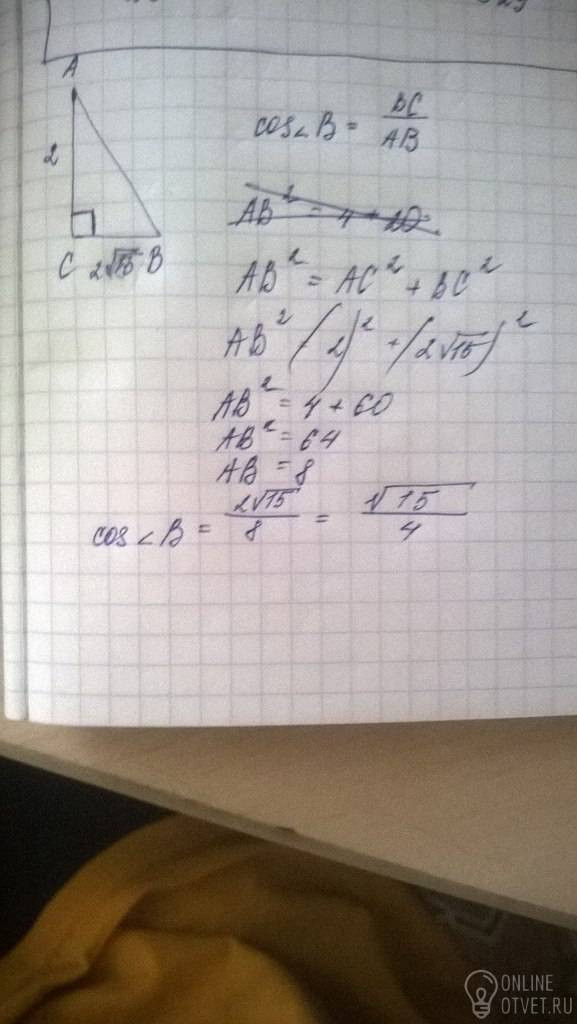 A
2
C 2√15 B
cos∠B = BC/AB
AB² = 4 + 20
AB² = AC² + BC²
AB² (2)² + (2√15)²
AB² = 4 + 60
AB² = 64
AB = 8
cos∠B = 2√15/8 = √15/4
ONLINE
OTVET.RU